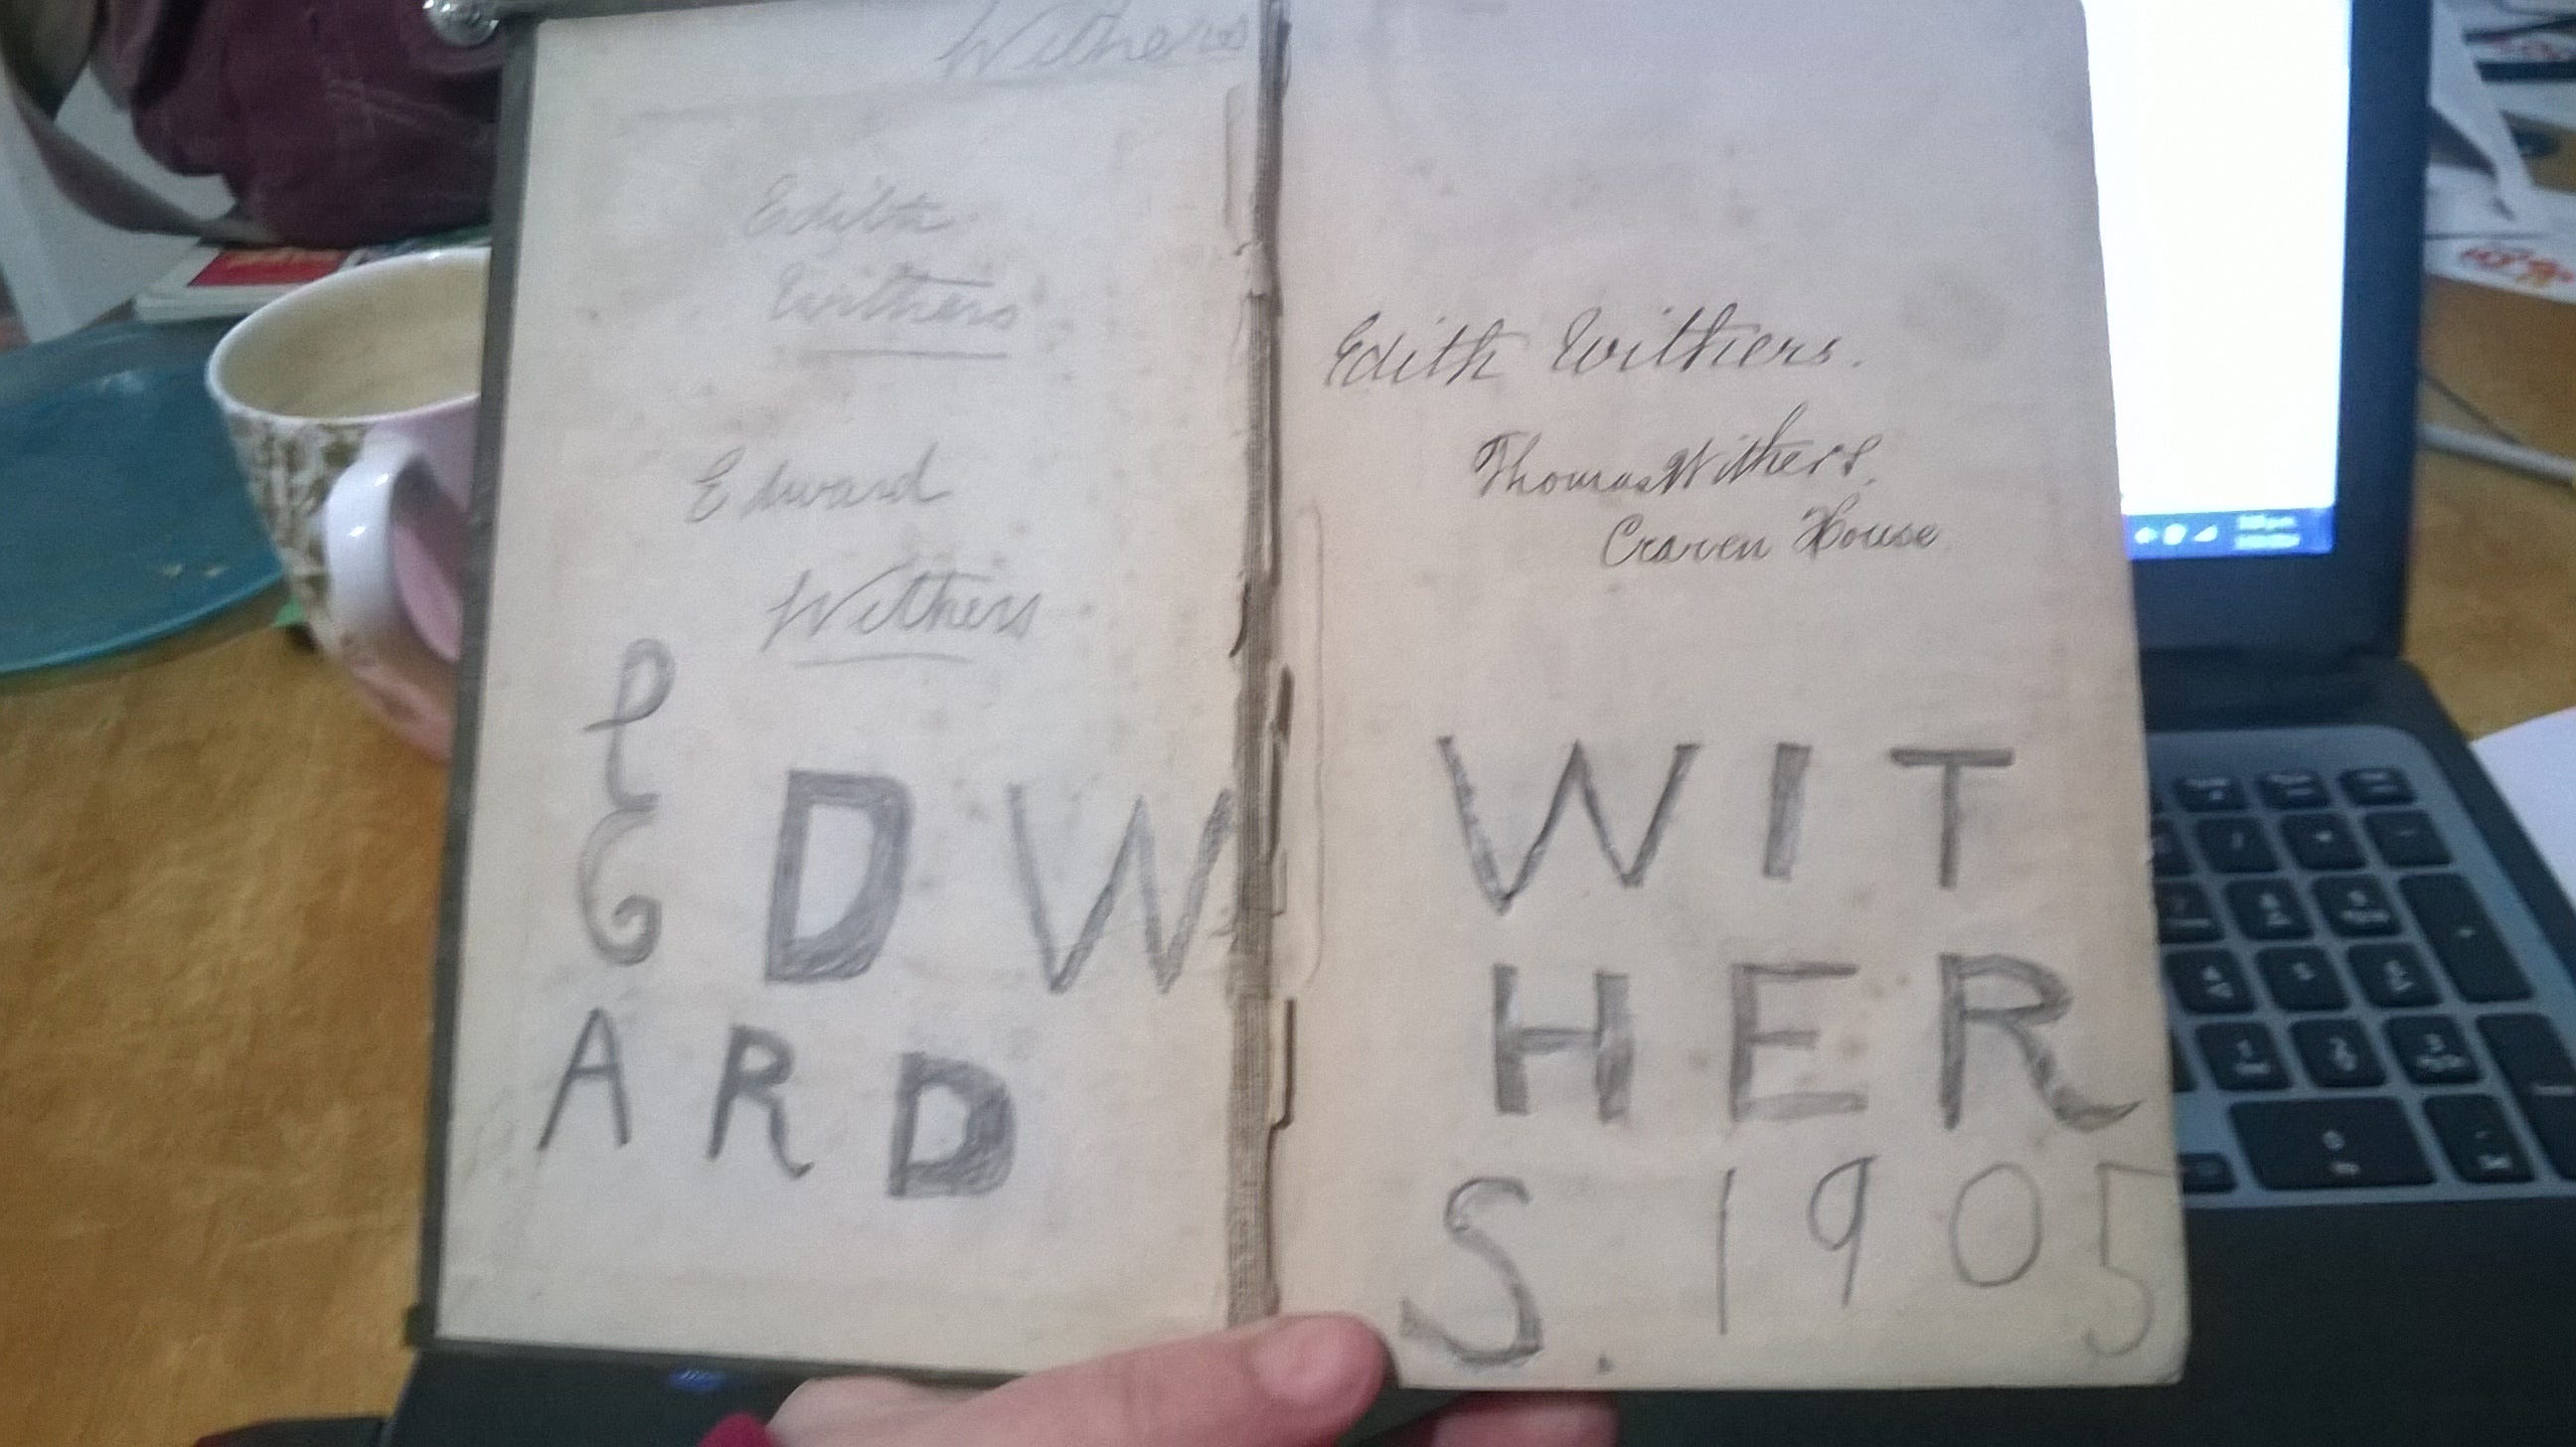 Withers
Edith
Withers
Edward
Withers
E D W
A R D
Edith Withers.
Thomas Withers.
Craven House
W I T
H E R
S. 1905